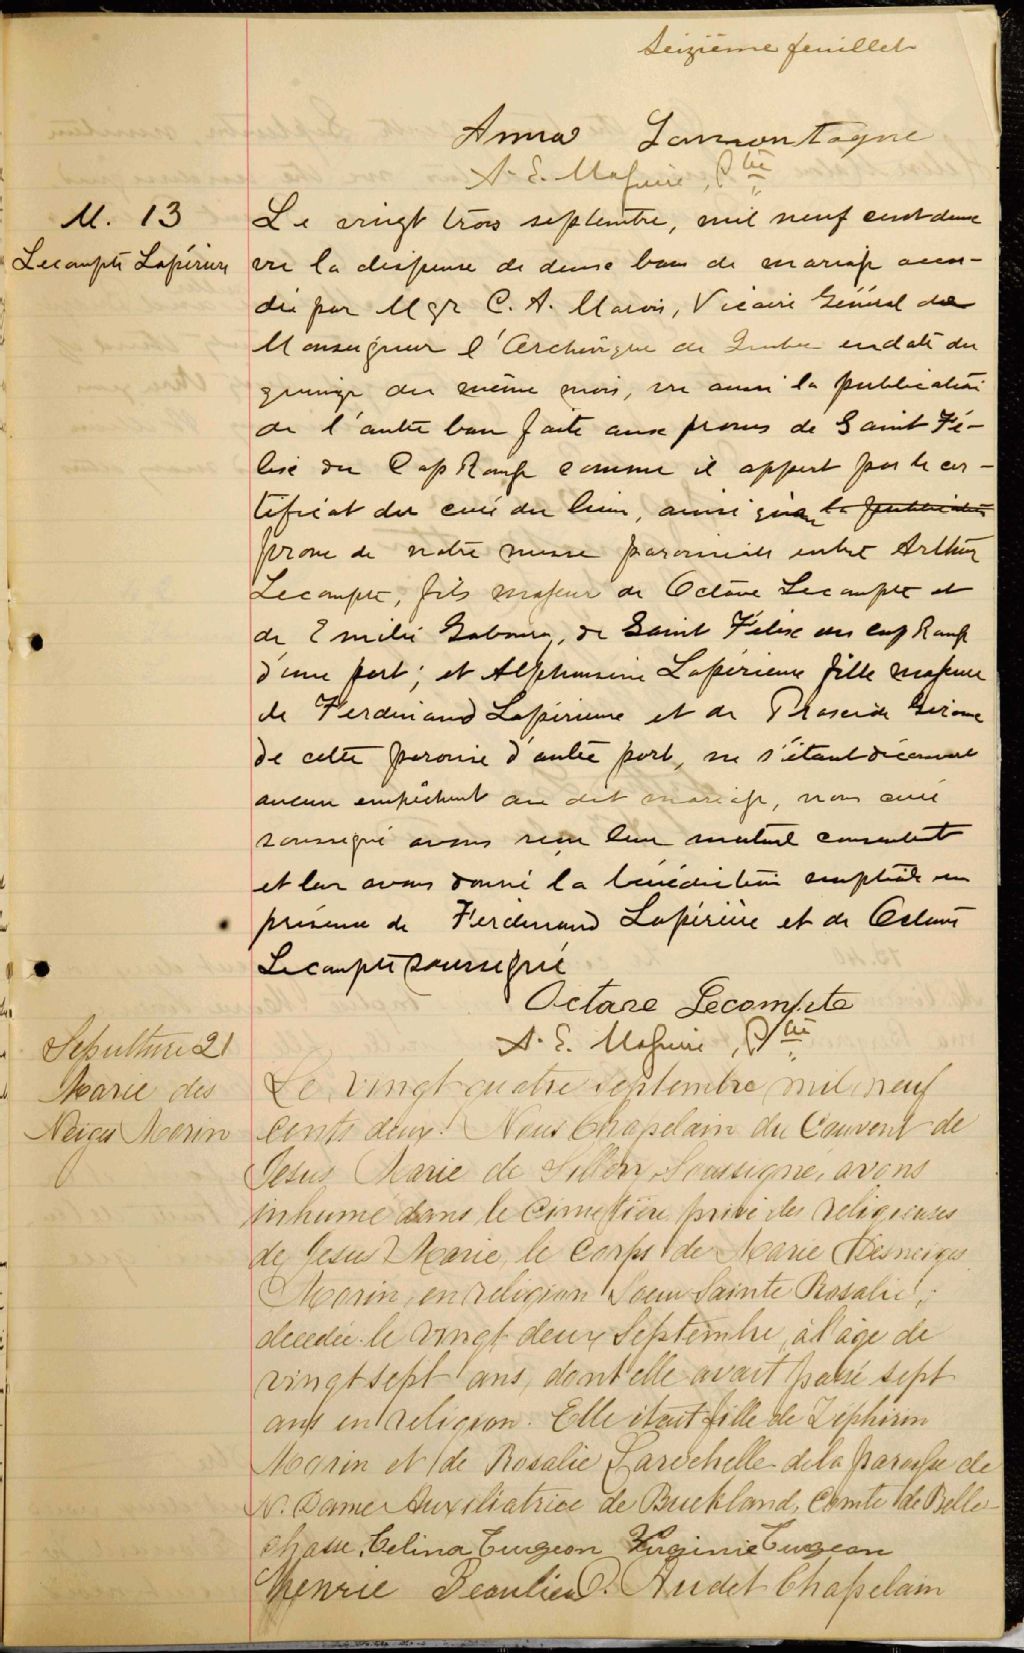 Seizième feuillet
Anna Lamontagne
A. E. Maguire, Ptre
M. 13
Lecompte Lapérière
Le vingt trois septembre, mil neuf cent deux
vu la dispense de deux bans de mariage accor-
dée par Mgr C. A. Marois, Vicaire Général de
Monseigneur l'Archevêque de Québec en date du
quinze du même mois, vu aussi la publication
de l'autre ban faite aux prônes de Saint Fé-
lix du Cap Rouge comme il appert par le cer-
tificat du curé du lieu, ainsi qu'au la publication
prone de notre messe paroissiale entre Arthur
Lecompte, fils majeur de Octave Lecompte et
de Emilie Gaboury, de Saint Félix du Cap Rouge
d'une part; et Alphonsine Lapérière fille majeure
de Ferdinand Lapérière et de
de cette paroisse d'autre part, ne s'étant découvert
aucun empêchement au dit mariage, nous curé
soussigné avons reçu leur mutuel consentement
et leur avons donné la bénédiction nuptiale en
présence de Ferdinand Lapérière et de Octave
Lecompte soussigné
Octave Lecompte
A. E. Maguire, Ptre
Sépulture 21
Marie des
Neiges Morin
Le vingt quatre septembre mil neuf
cents deux. Nous Chapelain du Couvent de
Jésus Marie de Sillery Soussigné, avons
inhumé dans le Cimetière privé des religieuses
de Jesus Marie, le Corps de Marie Desneiges
Morin, en religion Soeur Sainte Rosalie,
decedée le vingt deux Septembre, à l'âge de
vingt sept ans, dont elle avait passé sept
ans en religion. Elle était fille de Zéphirin
Morin et de Rosalie Larochelle de la paroisse de
N. Dame Auxiliatrice de Buckland, Comté de Belle-
chasse. Celina Turgeon Virginie Turgeon
Henrie Beaulieu O. Audet Chapelain